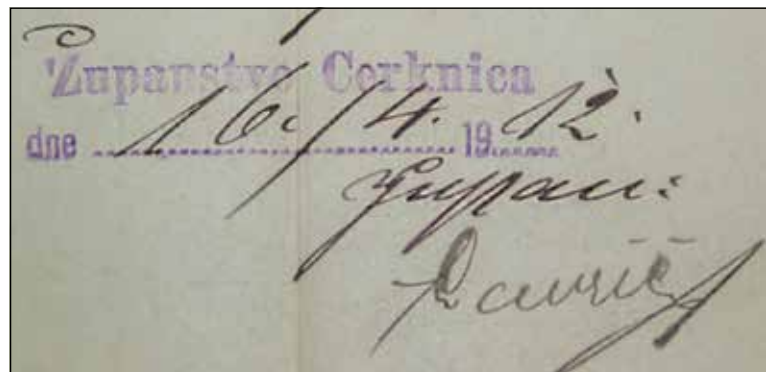 Županstvo Cerknica
dne 16./4. 1912.
Župan: